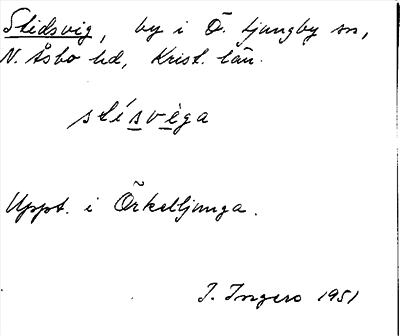 Stidsvig, by i Ö. Ljungby sn,
N. Åsbo hd, Krist. län.
stísvèga
Uppt. i Örkelljunga.
I. Ingers 1951